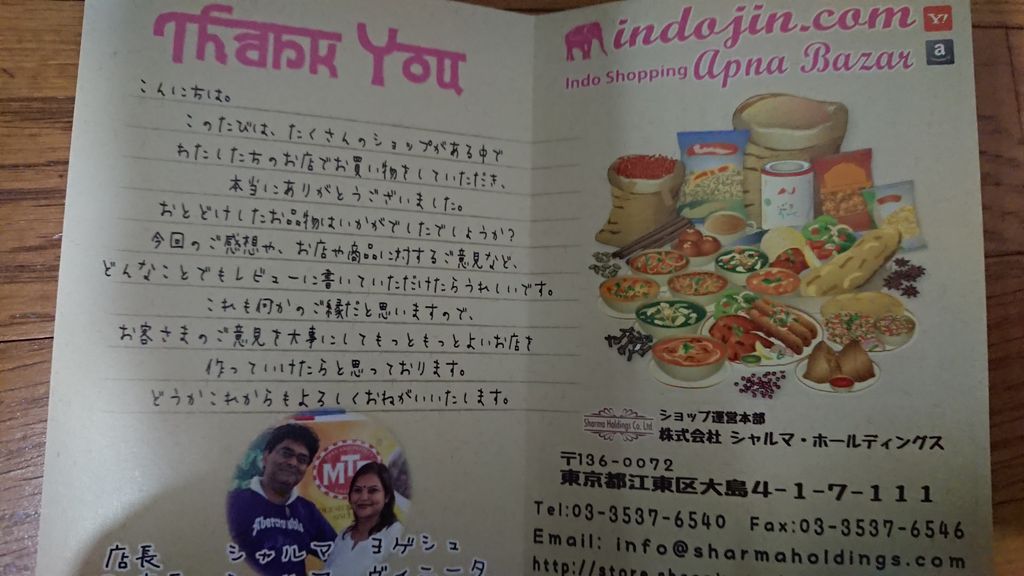 Thank You
こんにちは。
このたびは、たくさんのショップがある中で
わたしたちのお店でお買い物をしていただき、
本当にありがとうございました。
おとどけしたお品物はいかがでしたでしょうか?
今回のご感想や、お店や商品に対するご意見など、
どんなことでもレビューに書いていただけたらうれしいです。
これも何かのご縁だと思いますので、
お客さまのご意見を大事にしてもっともっとよいお店を
作っていけたらと思っております。
どうかこれからもよろしくおねがいいたします。
MTR
店長 シャルマ ヨゲシュ
シャルマ ヴィニータ
indojin.com
Y!
Indo Shopping Apna Bazar
a
Sharma Holdings Co. Ltd
ショップ運営本部
株式会社 シャルマ・ホールディングス
〒136-0072
東京都江東区大島4-1-7-111
Tel:03-3537-6540 Fax:03-3537-6546
Email: info@sharmaholdings.com
http://store.